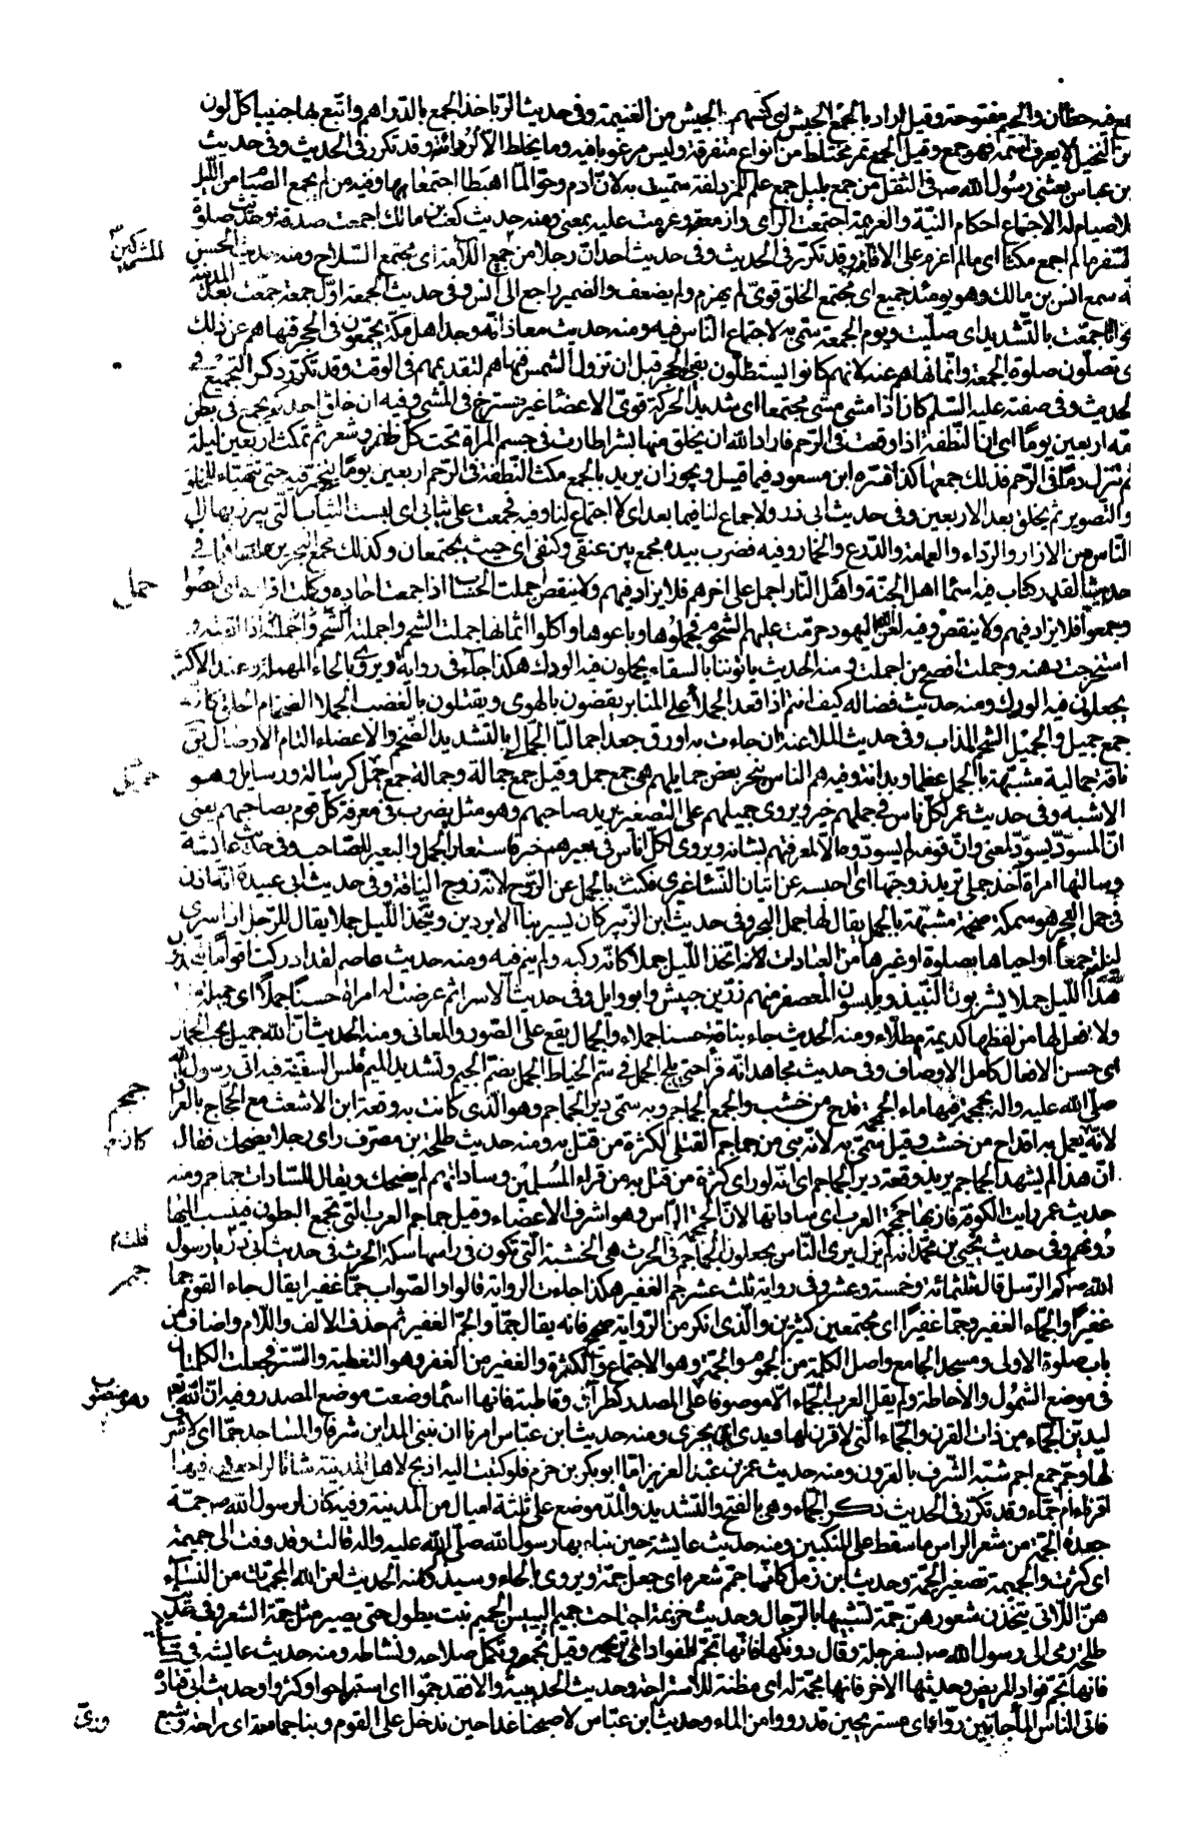 فيه حظان والجيم مفتوحة وقيل اراد بالجمع الجيش اى كسهم الجيش من الغنيمة وفى حديث الربا خذ الجمع بالدراهم وابتع بها جنيبا كل لون
من النخيل لا يعرف اسمه فهو جمع وقيل الجمع تمر مختلط من انواع متفرقة وليس مرغوبا فيه وما يخلط الا لردائته وقد تكرر فى الحديث وفى حديث
بن عباس بعثنى رسول الله صـ فى الثقل من جمع بليل جمع علم للمزدلفة سميت به لان ادم وحوا لما اهبطا اجتمعا بها وفيه من لم يجمع الصيام من الليل
فلا صيام له الاجماع احكام النية والعزيمة اجتمعت الراى وازمعته وعزمت عليه بمعنى ومنه حديث كعب بن مالك اجمعت صدقه وحديث صلوة
السفر ما لم اجمع مكثا اى ما لم اعزم على الاقامة وقد تكرر فى الحديث وفى حديث احد ان رجلا من المشركين جميع اللأمة اى مجتمع السلاح ومنه حديث الحسن
انه سمع انس بن مالك وهو يومئذ جميع اى مجتمع الخلق قوى لم يهرم ولم يضعف والضمير راجع الى انس وفى حديث الجمعة اول جمعة جمعت بعد المدينة
جمعت بالتشديد اى صليت ويوم الجمعة سمى به لاجتماع الناس فيه ومنه حديث معاذ انه وجد اهل مكة يجمعون فى الحجر فنهاهم عن ذلك
اى تصلون صلوة الجمعة وانما نهاهم عنه لانهم كانوا يستظلون بفئ الحجر قبل ان تزول الشمس فنهاهم لتقديمهم فى الوقت وقد تكرر ذكر التجميع فى
الحديث وفى صفته عليه السلم كان اذا مشى مشى مجتمعا اى شديد الحركة قوى الاعضاء غير مسترخ فى المشى وفيه ان خلق احدكم يجمع فى بطن
امه اربعين يوما اى ان النطفة اذا وقعت فى الرحم فاراد الله ان يخلق منها بشرا طارت فى جسم المراة تحت كل ظفر وشعر ثم تمكث اربعين ليلة
ثم تنزل دما فى الرحم فذلك جمعها كذا فسره ابن مسعود فيما قيل ويجوز ان يريد بالجمع مكث النطفة فى الرحم اربعين يوما يتخمر فيه حتى تتهياء للخلق
والتصوير ثم يخلق بعد الاربعين وفى حديث ابى ذر ولا جماع لنا فيما بعد اى لا اجتماع لنا وفيه فجمعت على ثيابى اى لبست الثياب التى يبرز بها الى
الناس من الازار والرداء والعمامة والدرع والخمار وفيه فضرب بيده مجمع بين عنقى وكتفى اى حيث يجتمعان وكذلك مجمع البحرين ملتقاهما فى
حديث القدر كتاب فيه اسماء اهل الجنة واهل النار اجمل على اخرهم فلا يزاد فيهم ولا ينقص اجملت الحساب اذا جمعت احاده وكملت افراده اى احصوا
وجمعوا فلا يزاد فيهم ولا ينقص وفيه لعن الله اليهود حرمت عليهم الشحوم فجملوها وباعوها واكلوا اثمانها جملت الشحم واجملته اذا اذبته و
استخرجت دهنه وجملت افصح من اجملت ومنه الحديث ياتوننا بالسقاء يجملون فيه الودك هكذا جاء فى رواية ويروى بالحاء المهملة وعند الاكثر
يجعلون فيه الودك ومنه حديث فضالة كيف انتم اذا قعد الجملاء على المنابر يقضون بالهوى ويقتلون بالغضب الجملا الضخام الخلق كانه
جمع جميل والجميل الشحم المذاب وفى حديث الملاعنة ان جاءت به اورق جعدا جماليا الجمالى بالتشديد الضخم والاعضاء التام الاوصال يق
ناقة جمالية مشبهة بالجمل عظما وبدانة وفيه هم الناس بنحر بعض جمايلهم هى جمع جمل وقيل جمع جمالة وجمالة جمع جمل كرسالة ورسايل وهو
الاشبه وفى حديث عمر لكل ناس فى جملهم خبر ويروى جميلهم على التصغير يريد صاحبهم وهو مثل يضرب فى معرفة كل قوم بصاحبهم يعنى
ان المسود يسود لمعنى وان قومه لم يسودوه الا لمعرفتهم بشانه ويروى لكل اناس فى بعيرهم خبر فاستعار الجمل والبعير للصاحب وفى حديث عايشة
وسالتها امراة اءخذ جملى تريد زوجها اى احبسه عن اتيان النساء غيرى فكنت بالجمل عن الزوج لانه زوج الناقة وفى حديث ابى عبيدة انه اذن
فى جمل البحر هو سمكة ضخمة مشبهة بالجمل يقال لها جمل البحر وفى حديث ابن الزبير كان يسير بنا الابردين ويتخذ الليل جملا يقال للرجل اذا سرى
ليلته جمعا او احياها بصلوة او غيرها من العبادات لانه اتخذ الليل جملا كانه ركبه ولم ينم فيه ومنه حديث عاصم لقد ادركت اقواما يتخذون
هذا الليل جملا يشربون النبيذ ويلبسون المعصفر منهم زر بن حبيش وابو وايل وفى حديث الاسراء ثم عرضت له امراة حسناء جملاء اى جميلة
ولا افعل لها من لفظها كديمة هطلاء ومنه الحديث جاء بناقة حسناء جملاء والجمال يقع على الصور والمعانى ومنه الحديث ان الله جميل يحب الجمال
اى حسن الافعال كامل الاوصاف وفى حديث مجاهد انه قرا حتى يلج الجمل فى سم الخياط الجمل بضم الجيم وتشديد الميم قلس السفينة فيه اتى رسول الله
صلى الله عليه واله بجمجمة فيها ماء الجمجمة قدح من خشب والجمع الجماجم وبه سمى دير الجماجم وهو الذى كانت به وقعة ابن الاشعث مع الحجاج بالعراق
لانه كان يعمل به اقداح من خشب وقيل سمى به لانه بنى من جماجم القتلى لكثرة من قتل به ومنه حديث طلحة بن مصرف راى رجلا يضحك فقال
ان هذا لم يشهد الجماجم يريد وقعة دير الجماجم اى انه لو راى كثرة من قتل به من قراء المسلمين وساداتهم لم يضحك ويقال للسادات جماجم ومنه
حديث عمر ايت الكوفة فان بها جمجمة العرب اى ساداتها لان الجمجمة الراس وهو اشرف الاعضاء وقيل جماجم العرب التى تجمع البطون فينسب اليها
دونهم وفى حديث يحيى بن محمد انه لم يزل يرى الناس يجعلون الجماجم فى الحرث هى الخشبة التى تكون فى راسها سكة الحرث فى حديث ابى ذر قلت يا رسول
الله صـ كم الرسل قال ثلثمائة وخمسة وعشر وفى رواية ثلث عشر جم الغفير هكذا جاءت الرواية قالوا والصواب جما غفيرا يقال جاء القوم جما
غفيرا والجماء الغفير وجما غفيرا اى مجتمعين كثيرين والذى انكر من الرواية صحيح فانه يقال جما والجم الغفير ثم حذف الالف واللام واضاف من
باب صلوة الاولى ومسجد الجامع واصل الكلمة من الجموم والجمة وهو الاجتماع والكثرة والغفير من الغفر وهو التغطية والستر فجعلت الكلمتان
فى موضع الشمول والاحاطة ولم يقل العرب الجماء الا موصوفا وهو منصوب على المصدر كطرا وقاطبة فانها اسماء وضعت موضع المصدر وفيه ان الله تعم
ليدين الجماء من ذات القرن والجماء التى لا قرن لها ويدى اى يجزى ومنه حديث ابن عباس امرنا ان نبنى المداين شرفا والمساجد جما اى لا شرف
لها وجم جمع اجم شبه الشرف بالقرون ومنه حديث عمر بن عبد العزيز اما ابو بكر بن حزم فلو كتبت اليه اذبح لاهل المدينة شاة لراجعنى فيها
اقرناء ام جماء وقد تكرر فى الحديث ذكر الجماء وهى بالفتح والتشديد والمد موضع على ثلثة اميال من المدينة وفيه كان لرسول الله صـ جمة
جعدة الجمة من شعر الراس ما سقط على المنكبين ومنه حديث عايشة حين بناء بها رسول الله صلى الله عليه واله قالت وقد وفت لى جميمة
اى كثرت والجميمة تصغير الجمة وحديث ابن زمل كانما جمم شعره اى جعل جمة ويروى بالحاء وسيذكر ومنه الحديث لعن الله المجممات من النساء
هن اللاتى يتخذن شعورهن جمة تشبيها بالرجال وحديث خزيمة اجتاحت جميم اليبيس الجميم نبت يطول حتى يصير مثل جمة الشعر وفى حديث
طلحة رمى الى رسول الله صـ بسفرجلة وقال دونكها فانها تجم الفواد اى تريحه وقيل تجمعه وتكمل صلاحه ونشاطه ومنه حديث عايشة فى
فانها تجم فواد المريض وحديثها الاخر فانها مجمة له اى مظنة للاستراحة وحديث الحديبية والا فقد جموا اى استراحوا وكثروا وحديث ابى قتادة
فاتى الناس الماء جامين رواء اى مستريحين قد رووا من الماء وحديث ابن عباس لاصبحنا غدا حين ندخل على القوم وبنا جمامة اى راحة وشبع
المشركين
جمل
جمجم
كان
قلت
جمم
وهو منصوب
ورى